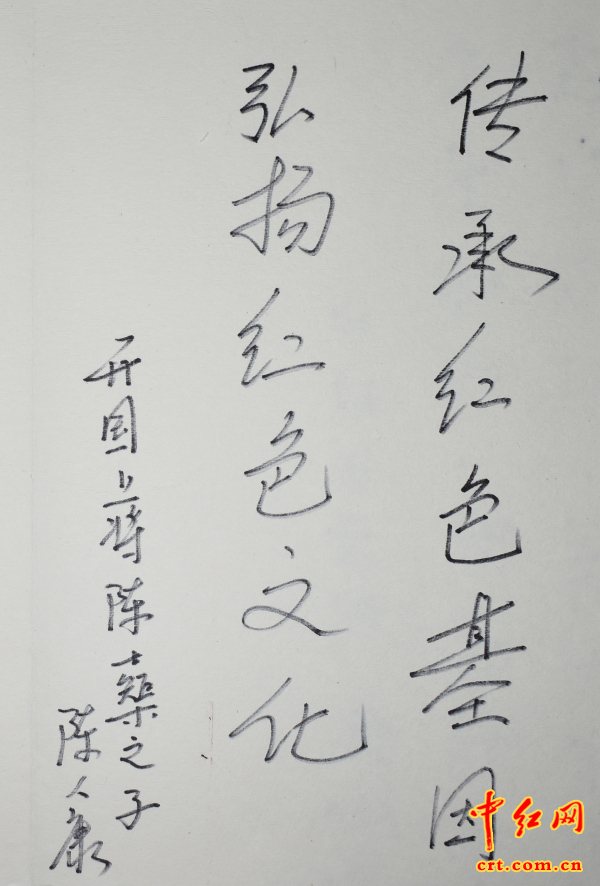 传承红色基因
弘扬红色文化
开国上将陈士榘之子
陈人康
中红网
crt.com.cn